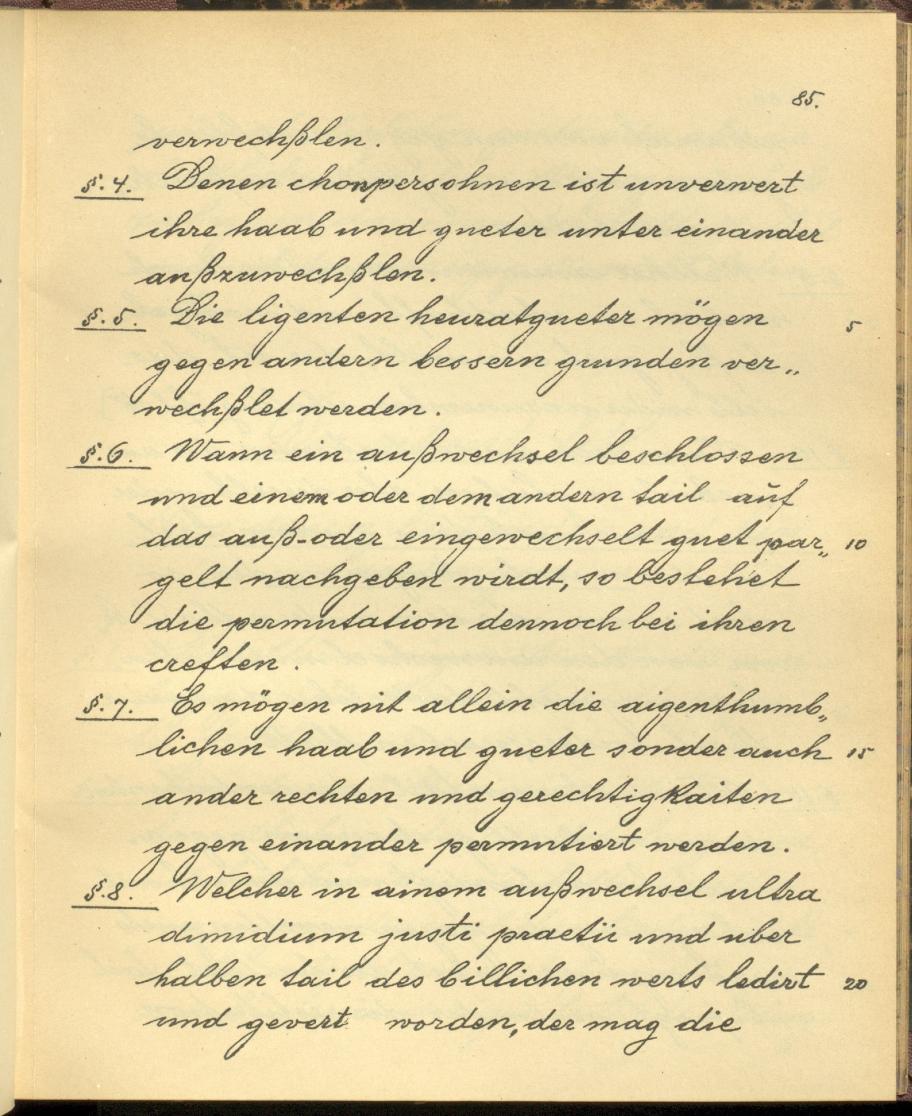 85.
verwechßlen.
§. 4. Denen chonpersohnen ist unverwert
ihre haab und gueter unter einander
außzuwechßlen.
§. 5. Die ligenten heuratgueter mögen 5
gegen andern bessern grunden ver„
wechßlet werden.
§. 6. Wann ein außwechsel beschlossen
und einem oder dem andern tail auf
das auß-oder eingewechselt guet par„ 10
gelt nachgeben wirdt, so bestehet
die permutation dennoch bei ihren
creften.
§. 7. Es mögen nit allein die aigenthumb„
lichen haab und gueter sonder auch 15
ander rechten und gerechtigkaiten
gegen einander permutiert werden.
§. 8. Welcher in ainem außwechsel ultra
dimidium justi praetii und uber
halben tail des billichen werts ledirt 20
und gevert worden, der mag die